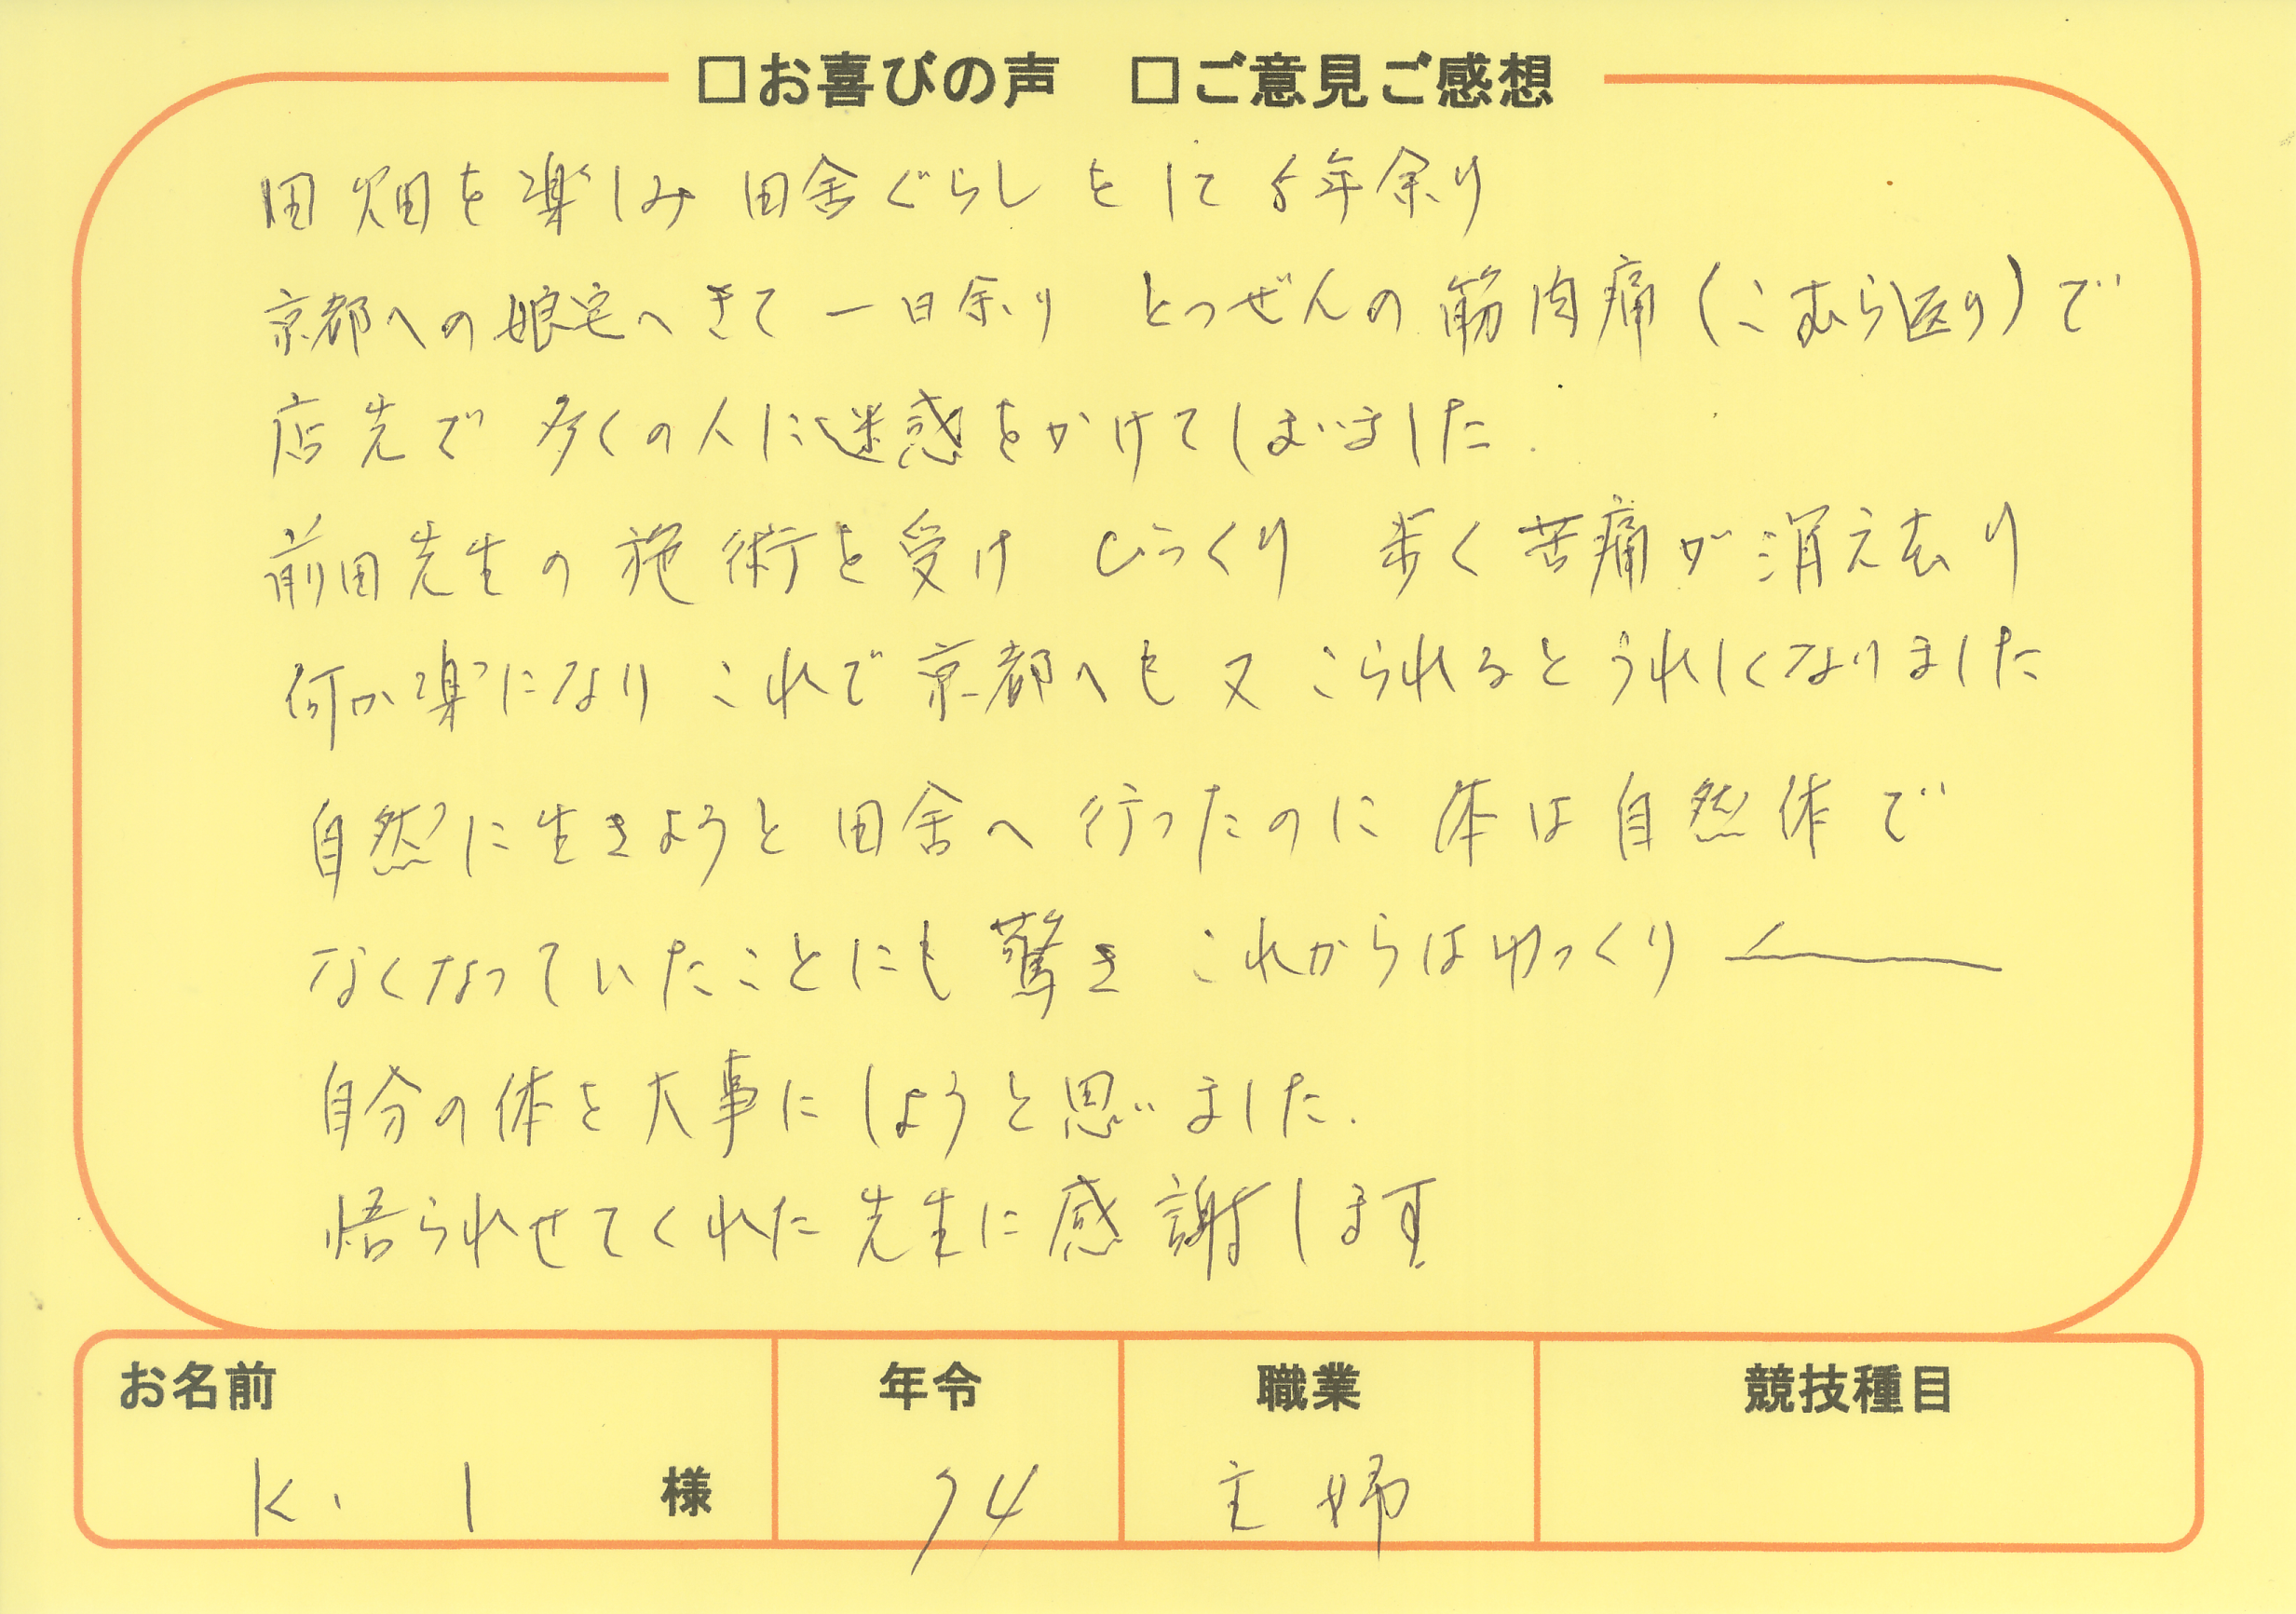 □お喜びの声 □ご意見ご感想
田畑を楽しみ 田舎ぐらし をして 5年余り
京都への娘宅へきて一日余り とつぜんの筋肉痛（こむら返り）で
店先で 多くの人に迷惑をかけてしまいました.
前田先生の施術を受け びっくり 歩く苦痛が消え去り
何か楽になり これで京都へも又 こられるとうれしくなりました
自然に生きようと田舎へ行ったのに 体は自然体で
なくなっていたことにも驚き これからはゆっくり
自分の体を大事にしようと思いました.
悟られせてくれた先生に感謝します
お名前 年令 職業 競技種目
K. I 様 74 主婦